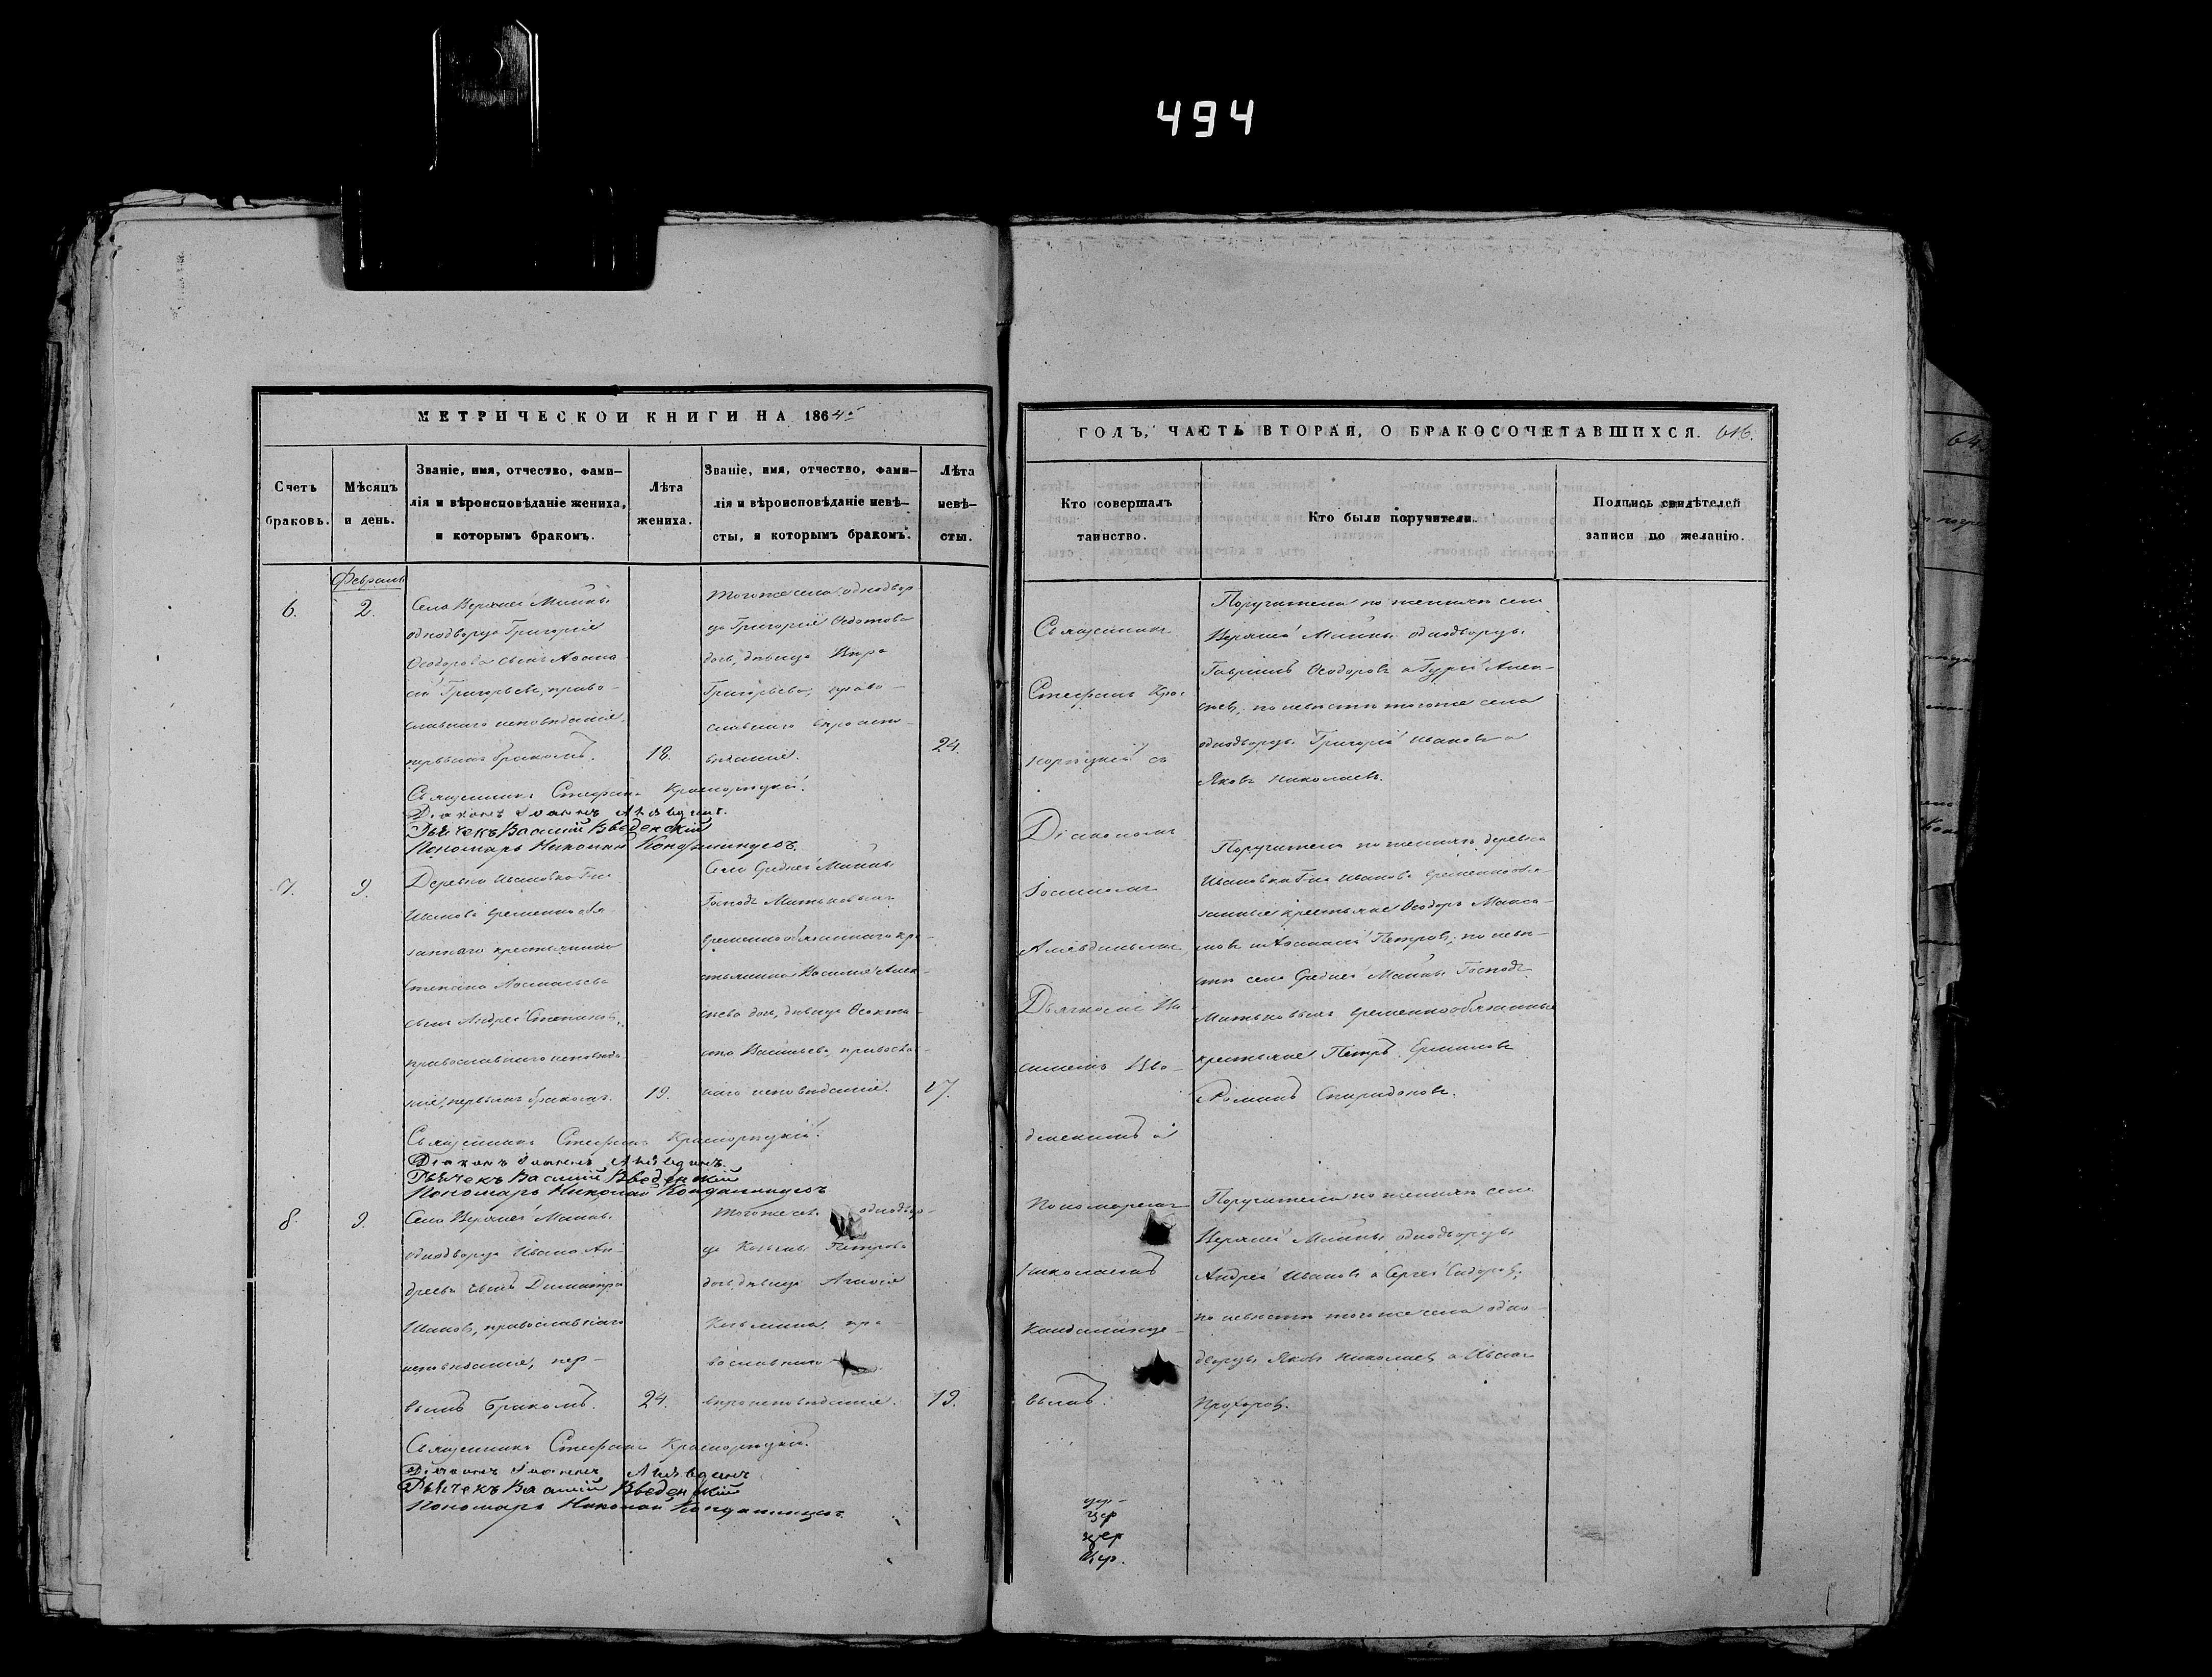 494
МЕТРИЧЕСКОЙ КНИГИ НА 1864й
Счетъ браковъ.
Мѣсяцъ и день.
Званіе, имя, отчество, фами-
лія и вѣроисповѣданіе жениха,
и которымъ бракомъ.
Лѣта жениха.
Званіе, имя, отчество, фами-
лія и вѣроисповѣданіе невѣ-
сты, и которымъ бракомъ.
Лѣта невѣ-
сты.
Февраль
6.
2.
Села Верхней Майны
однодворца Григорія
Ѳеодорова сынъ Аѳана
сій Григорьевъ, право-
славнаго исповѣданія,
первымъ бракомъ.
18.
тогоже села однодвор
ца Григорія Ѳедотова
дочь, дѣвица Вѣра
Григорьева, право-
славнаго вѣроиспо-
вѣданія.
24.
Священникъ Стефанъ Краснорѣцкій.
Діаконъ Іоаннъ
Дьячекъ Василій Введенскій
Пономарь Николай
7.
9.
Деревни Ивановки Г-на
Иванова временнообя
заннаго крестьянина
Степана
сынъ Андрей Степановъ,
православнаго исповѣда
нія, первымъ бракомъ.
19.
Села Средней Майны
Господъ Матюковыхъ
временнообязаннаго кре-
стьянина Василія Алек-
сѣева дочь, дѣвица Ѳеокти-
ста Васильева, православ-
наго исповѣданія.
17.
Священникъ Стефанъ Краснорѣцкій.
Діаконъ Іоаннъ
Дьячекъ Василій Введенскій
Пономарь Николай
8.
9.
Села Верхней Майны
однодворца Ивана Ан-
дреева сынъ Димитрій
Ивановъ, православнаго
исповѣданія, пер-
вымъ бракомъ.
24.
тогоже села однодвор-
ца Козьмы Петрова
дочь, дѣвица
Козьмина, пра-
вославнаго
вѣроисповѣданія.
19.
Священникъ Стефанъ Краснорѣцкій.
Діаконъ Іоаннъ
Дьячекъ Василій Введенскій
Пономарь Николай
ГОДЪ, ЧАСТЬ ВТОРАЯ, О БРАКОСОЧЕТАВШИХСЯ. 616.
Кто совершалъ таинство.
Кто были поручители.
Подпись свидѣтелей записи по желанію.
Священникъ
Стефанъ Крас
норѣцкій съ
Діакономъ
Іоанномъ
Дьячкомъ Ва
силіемъ Вве-
денскимъ и
Пономаремъ
Николаемъ
Поручители по женихѣ села
Верхней Майны однодворцы
Гавріилъ Ѳеодоровъ и Гурій Алек-
сѣевъ; по невѣстѣ тогоже села
однодворцы Григорій Ивановъ и
Яковъ Николаевъ.
Поручители по женихѣ деревни
Ивановки Г-на Иванова временнообя-
занные крестьяне Ѳеодоръ Макси-
мовъ и Аѳанасій Петровъ; по невѣ-
стѣ села Средней Майны Господъ
Матюковыхъ временнообязанные
крестьяне Петръ Ермиловъ
и Романъ Спиридоновъ.
Поручители по женихѣ села
Верхней Майны однодворцы
Андрей Ивановъ и Сергей Сидоровъ;
по невѣстѣ тогоже села одно-
дворцы Яковъ Николаевъ и Иванъ
Прохоровъ.